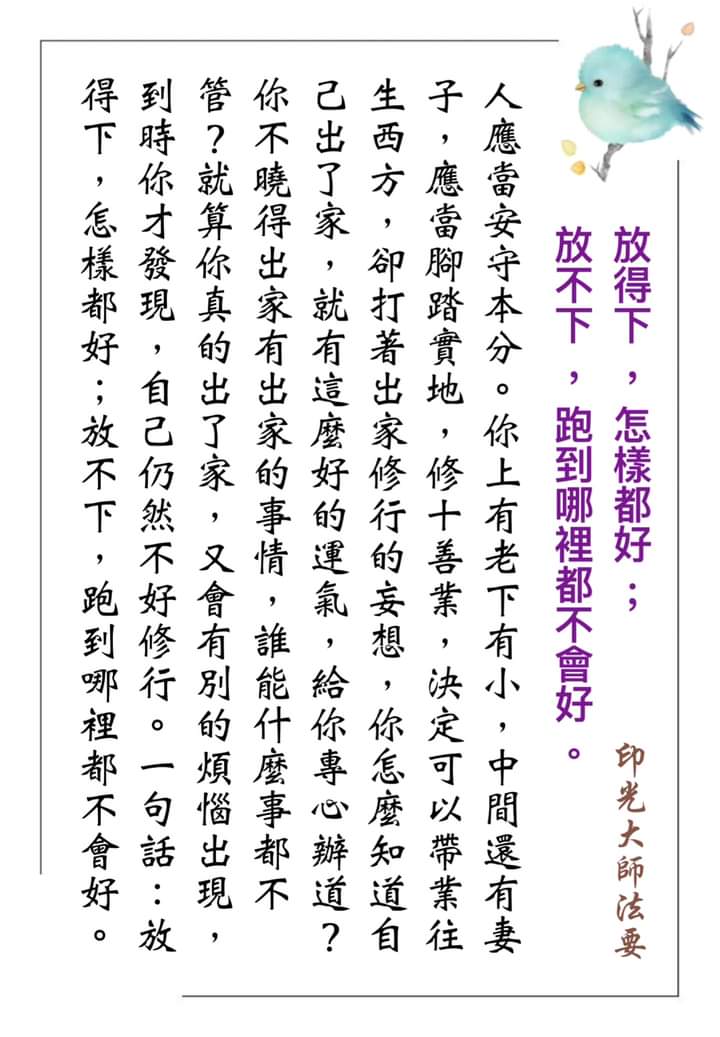 放得下，怎樣都好；
放不下，跑到哪裡都不會好。
印光大師法要
人應當安守本分。你上有老下有小，中間還有妻
子，應當腳踏實地，修十善業，決定可以帶業往
生西方，卻打著出家修行的妄想，你怎麼知道自
己出了家，就有這麼好的運氣，給你專心辦道？
你不曉得出家有出家的事情，誰能什麼事都不
管？就算你真的出了家，又會有別的煩惱出現，
到時你才發現，自己仍然不好修行。一句話：放
得下，怎樣都好；放不下，跑到哪裡都不會好。